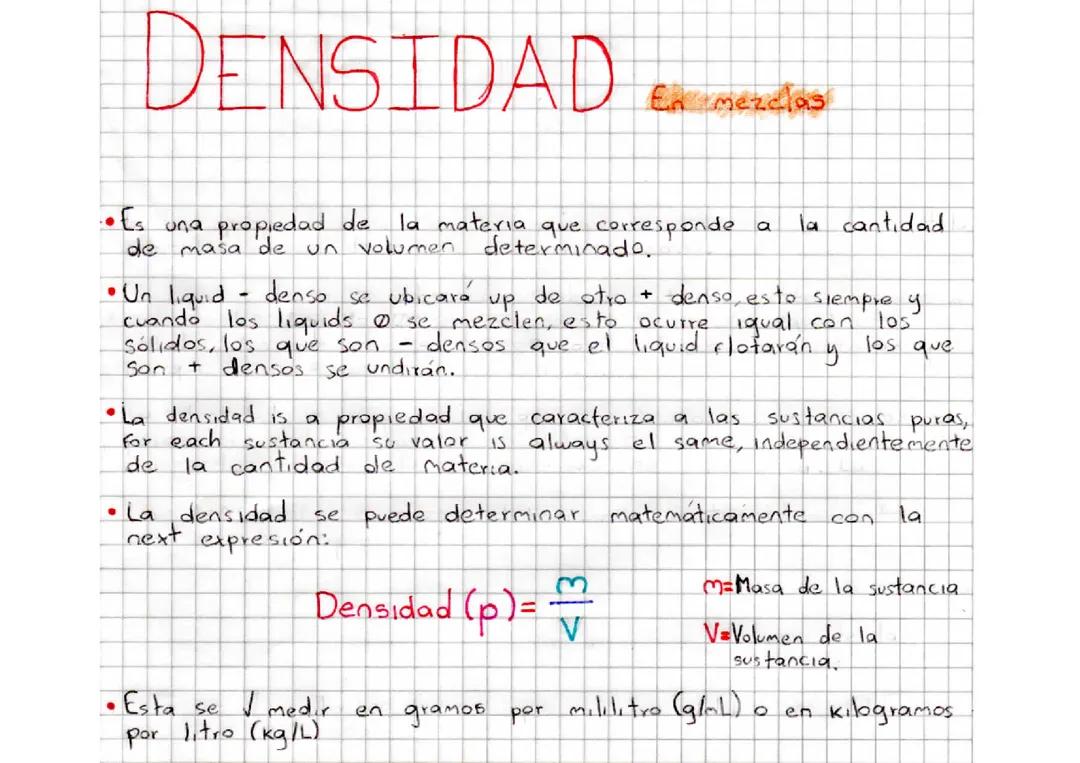 DENSIDAD En mezclas
• Es una propiedad de la materia que corresponde a la cantidad
de masa de un volumen determinado.
• Un liquid - denso se ubicará up de otro + denso, esto siempre y
cuando los liquids Ø se mezclen, esto ocurre igual con los
sólidos, los que son - densos que el liquid flotarán y los que
son + densos se undirán.
• La densidad is a propiedad que caracteriza a las sustancias puras,
for each sustancia su valor is always el same, independientemente
de la cantidad de materia.
• La densidad se puede determinar matemáticamente con la
next expresión:
Densidad (p) = m/V
m=Masa de la sustancia
V=Volumen de la
sustancia.
• Esta se √ medir en gramos por mililitro (g/mL) o en kilogramos
por litro (kg/L)